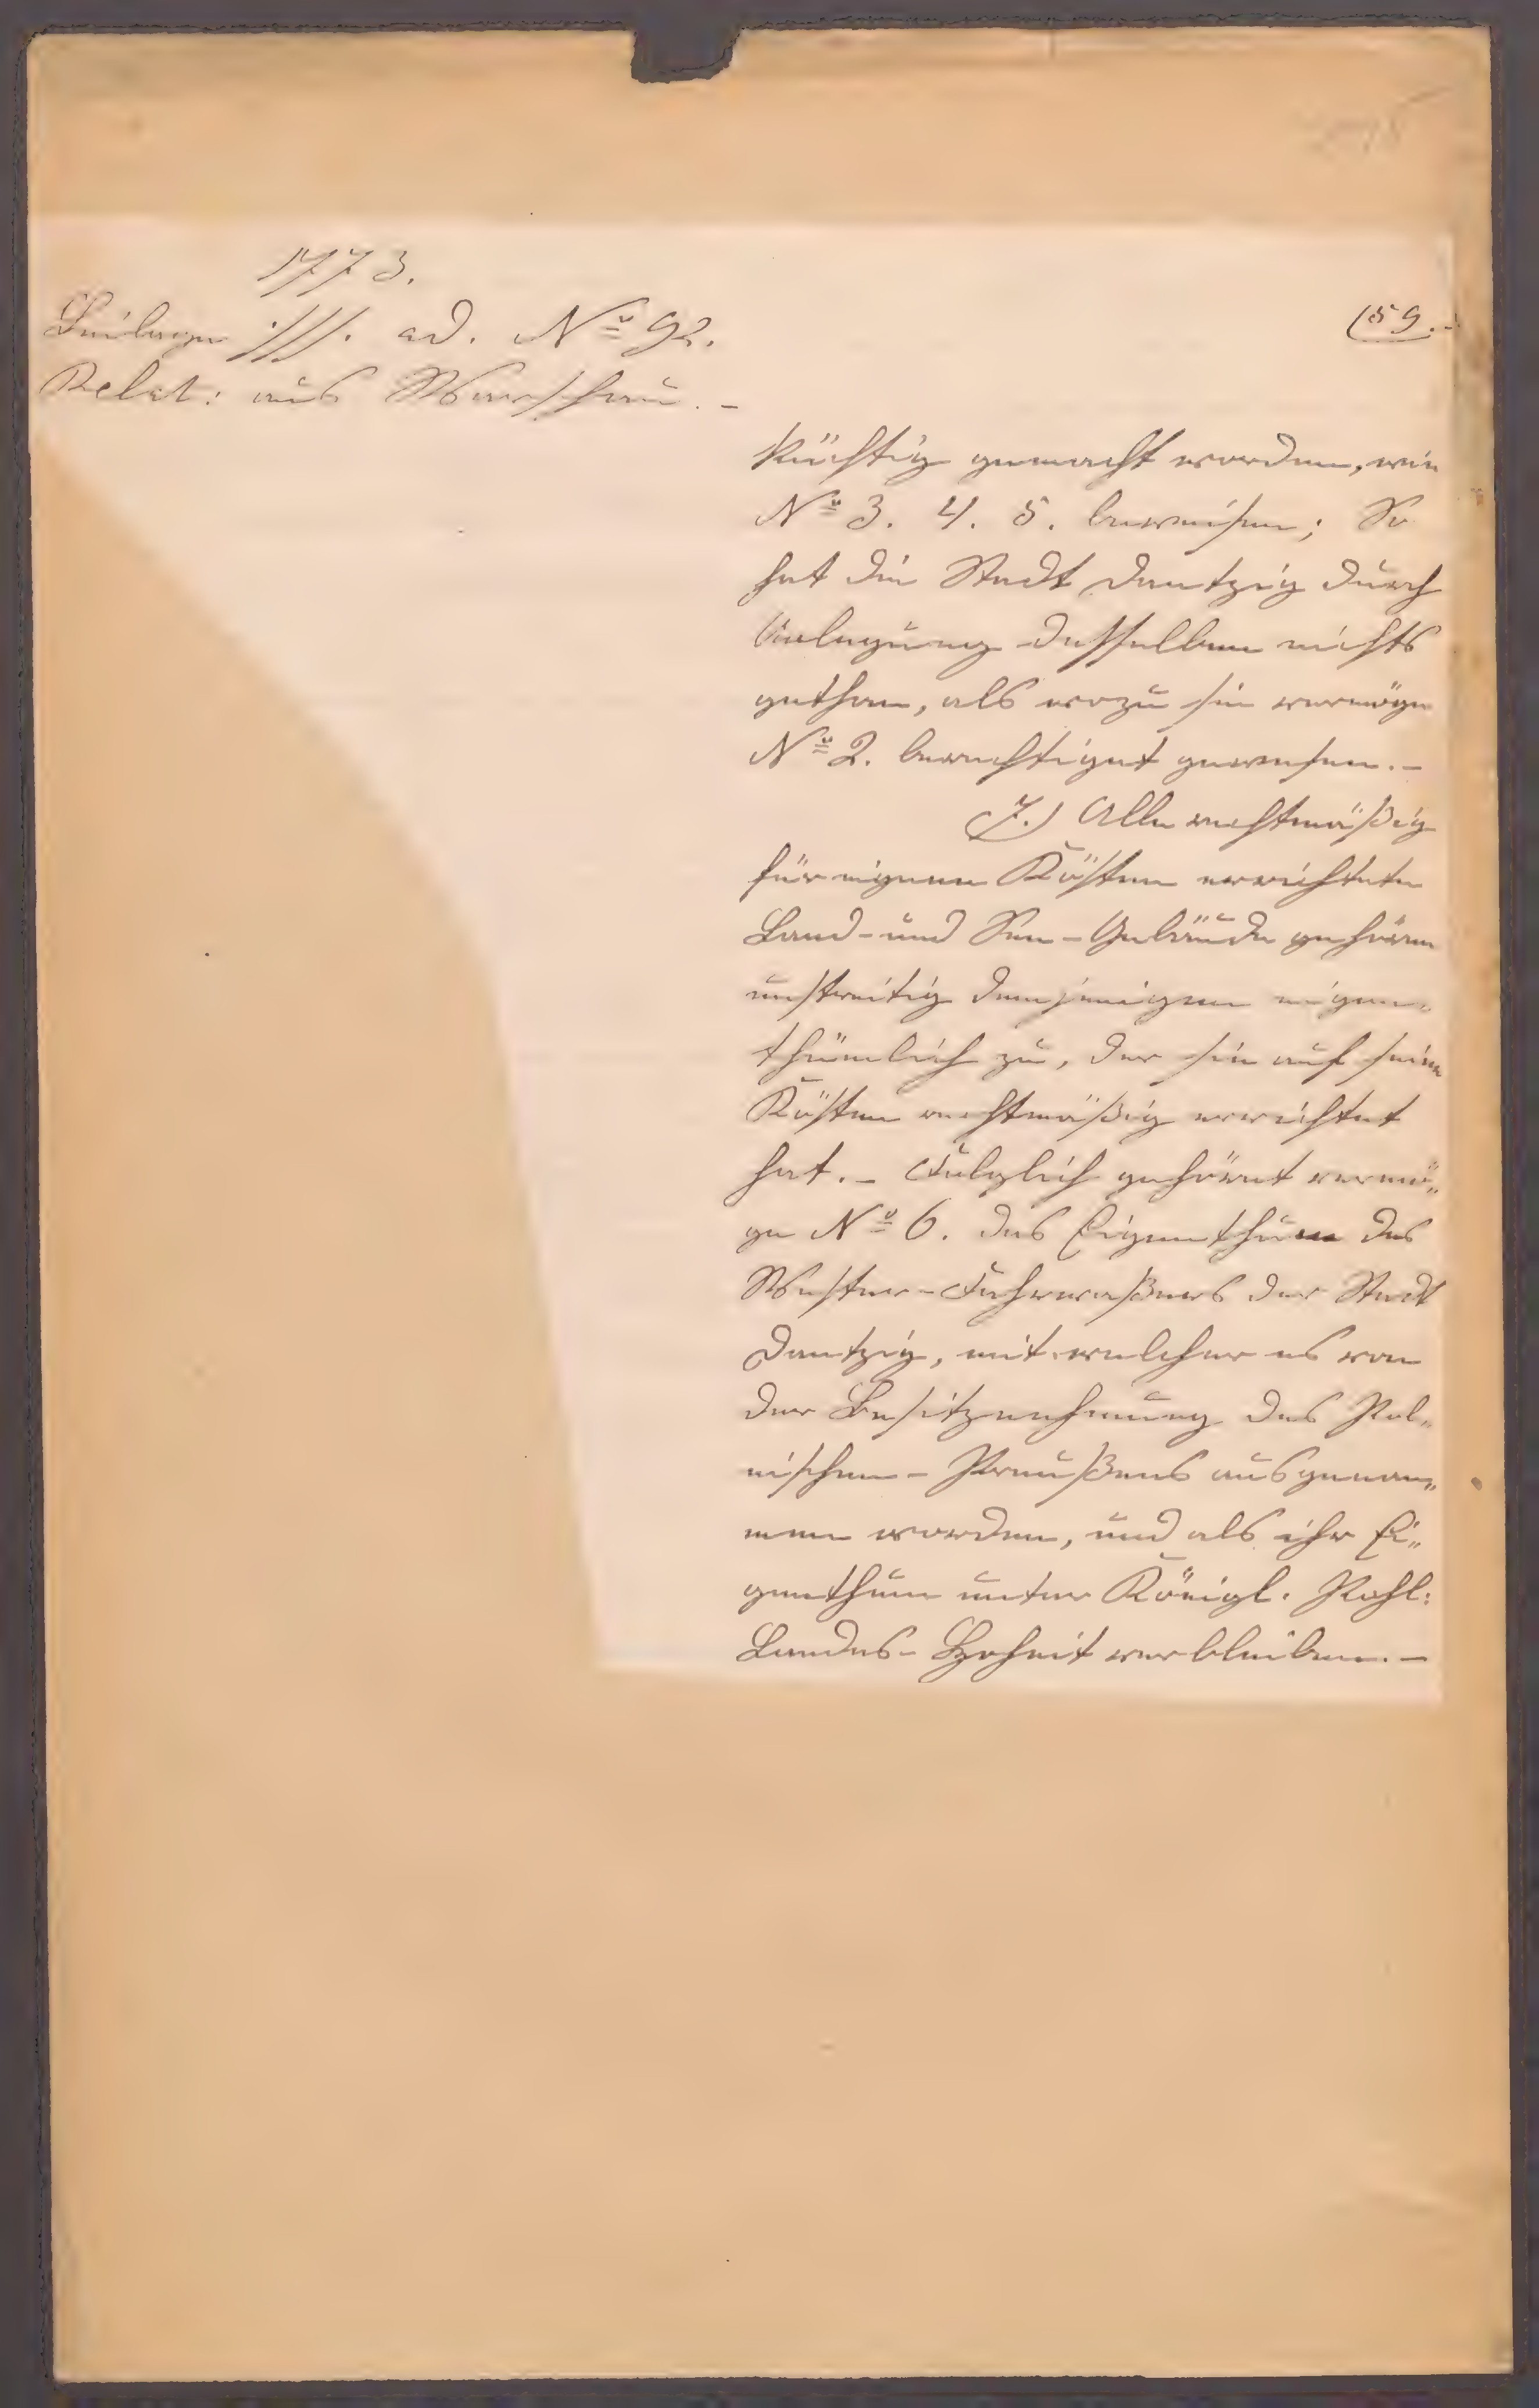 1773.
Beilage ·///. ad. No 92.
Relat: aus Warschau. -
159. -
küchtig gemacht worden, wie
No 3. 4. 5. beweisen; So
hat die Stadt Dantzig durch
Anlegung desselben nichts
gethan, als wozu sie vermöge
No 2. berechtiget gewesen. -
7.) Alle rechtmäßig
für eigene Kösten errichtete
Land- und See-Gebäude gehören
unstreitig demjenigen eigen-
thümlich zu, der sie auf seine
Kösten rechtmäßig errichtet
hat. - Folglich gehöret vermö-
ge No 6. das Eigenthum des
Wester-Fahrwaßers der Stadt
Dantzig, mit welcher es von
der Besitznehmung des Pol-
nischen-Preußens ausgenom-
men worden, und als ihr Ei-
genthum unter Königl. Pohl:
Landes-Hoheit verblieben. -